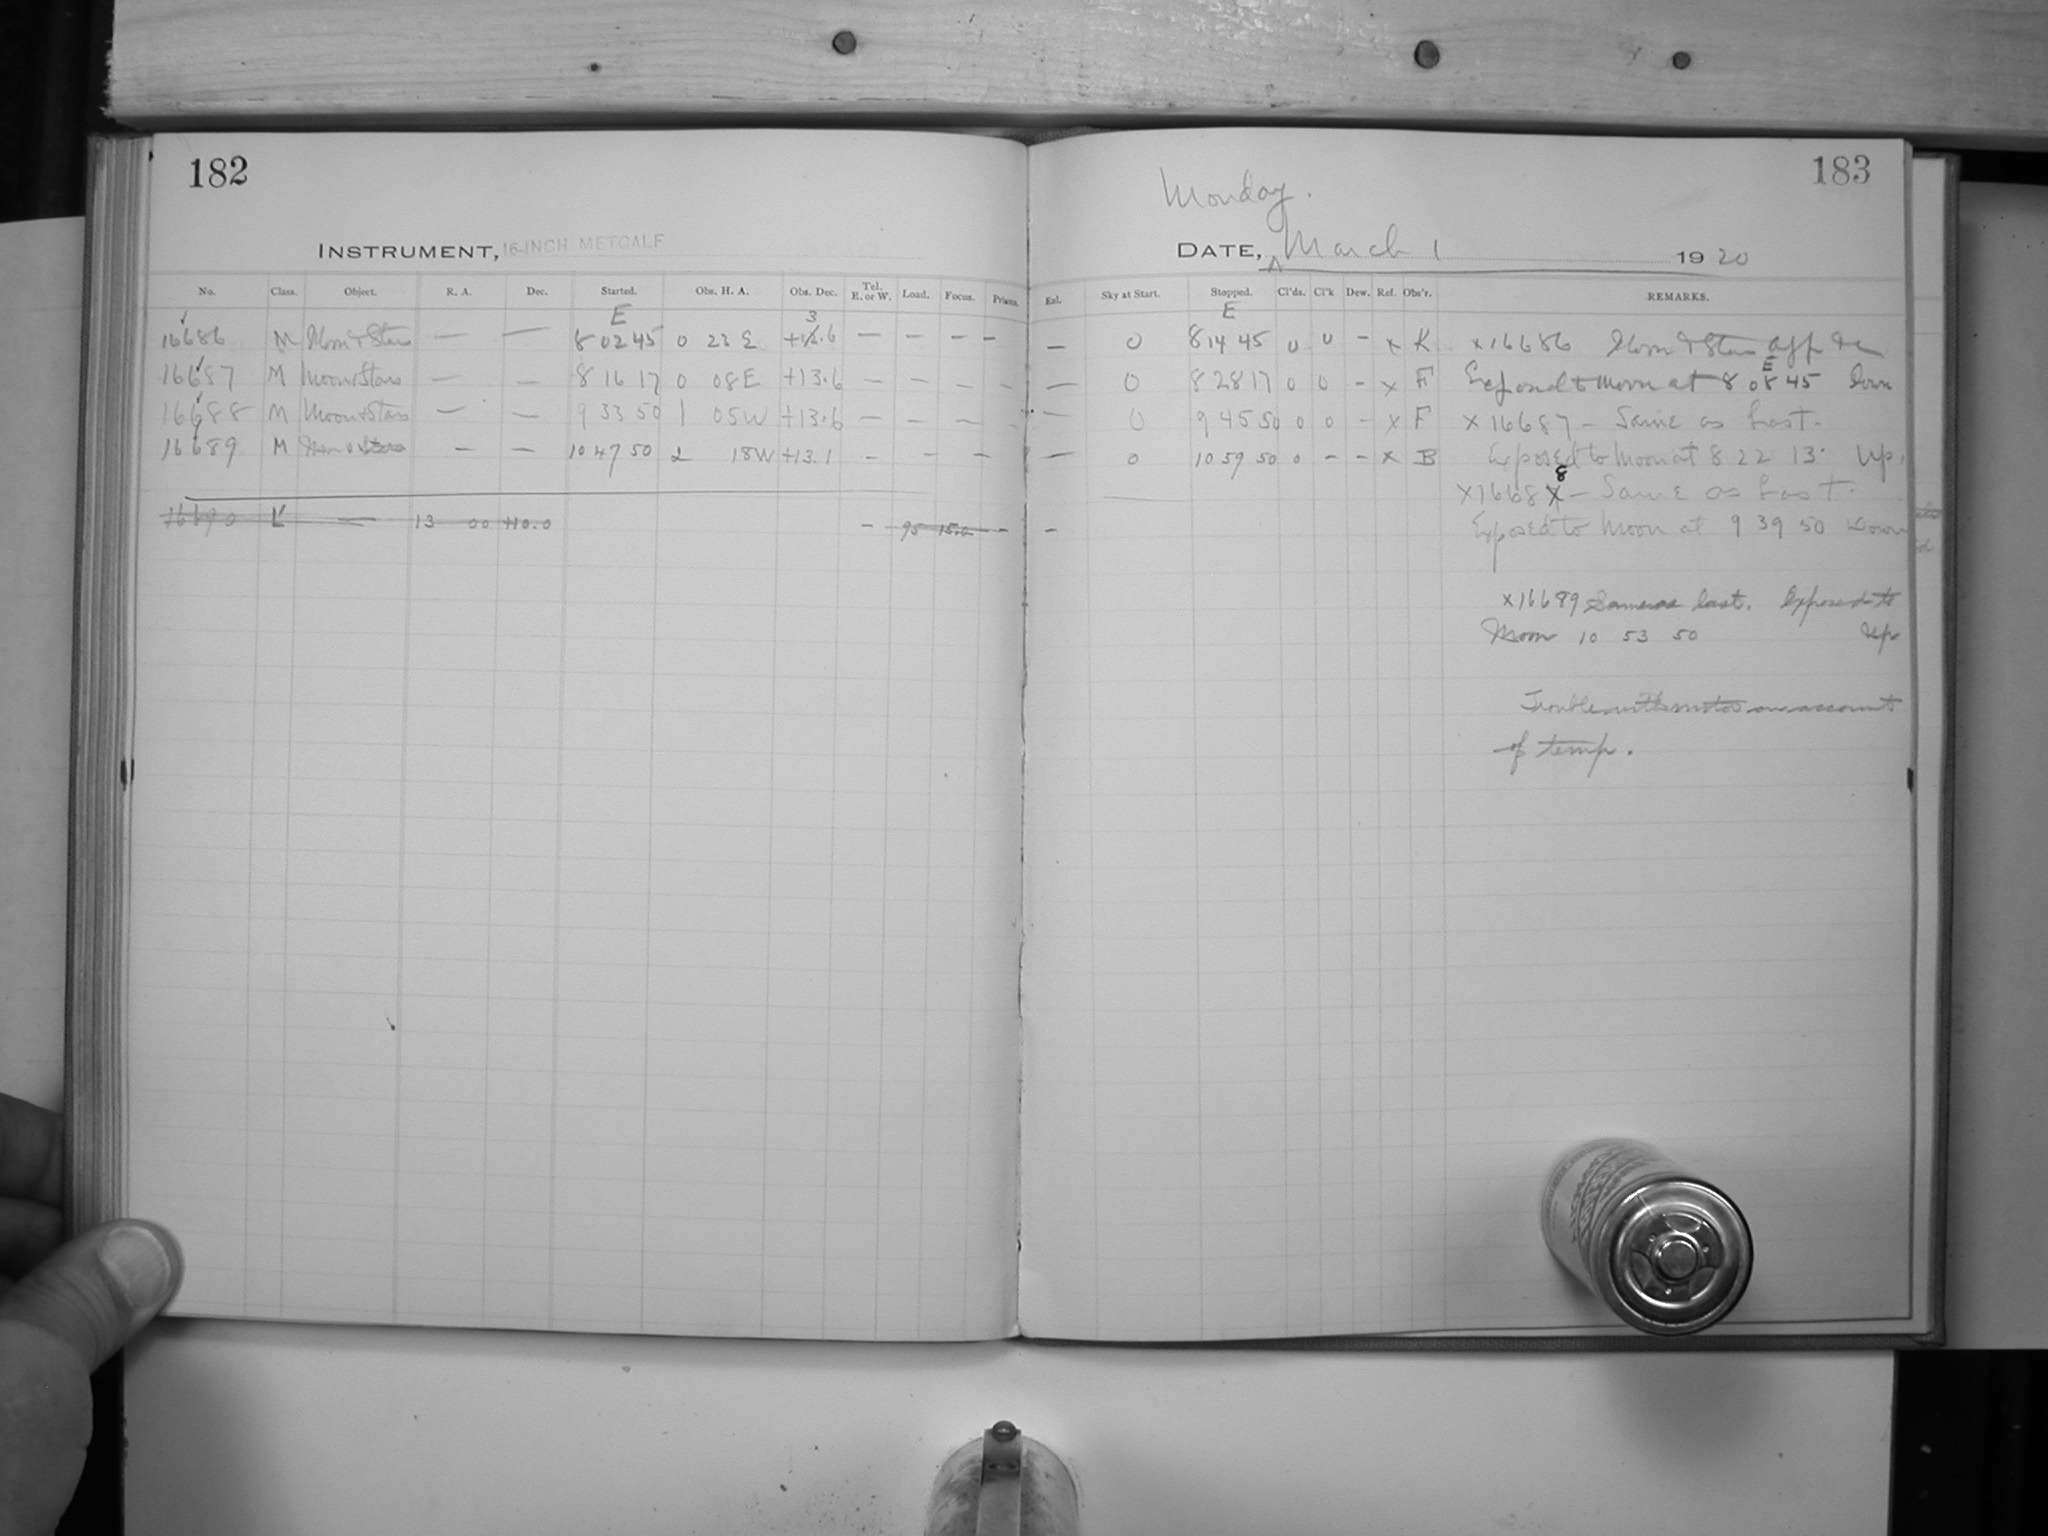 182
INSTRUMENT, 16-INCH METCALF
No. Class. Object. R. A. Dec. Started. Obs. H. A. Obs. Dec. Tel. E. or W. Load. Focus. Prisms.
E 3
16686 M Moon & Stars — — 8 02 45 0 23 E +12.6 — — — —
16687 M Moon & Stars — — 8 16 17 0 08 E +13.6 — — — —
16688 M Moon & Stars — — 9 33 50 1 05 W +13.6 — — — —
16689 M Moon & Stars — — 10 47 50 2 18 W +13.1 — — — —
16690 L — 13 00 +10.0 — 95 15.0 —
183
Monday.
DATE, ^ March 1 1920
Exl. Sky at Start. Stopped. Cl'ds. Cl'k Dew. Ref. Obs'r. REMARKS.
E
— 0 8 14 45 0 0 — x K x16686 Moon & Stars
E
— 0 8 28 17 0 0 — x F Exposed to moon at 8 08 45 Down
— 0 9 45 50 0 0 — x F x16687 — Same as Last.
— 0 10 59 50 0 — — x B Exposed to Moon at 8 22 13. Up.
8
x1668X — Same as Last.
— Exposed to Moon at 9 39 50 Down
x16689 Same as last. Exposed to
Moon 10 53 50 Up
Trouble with motor on account
of temp.